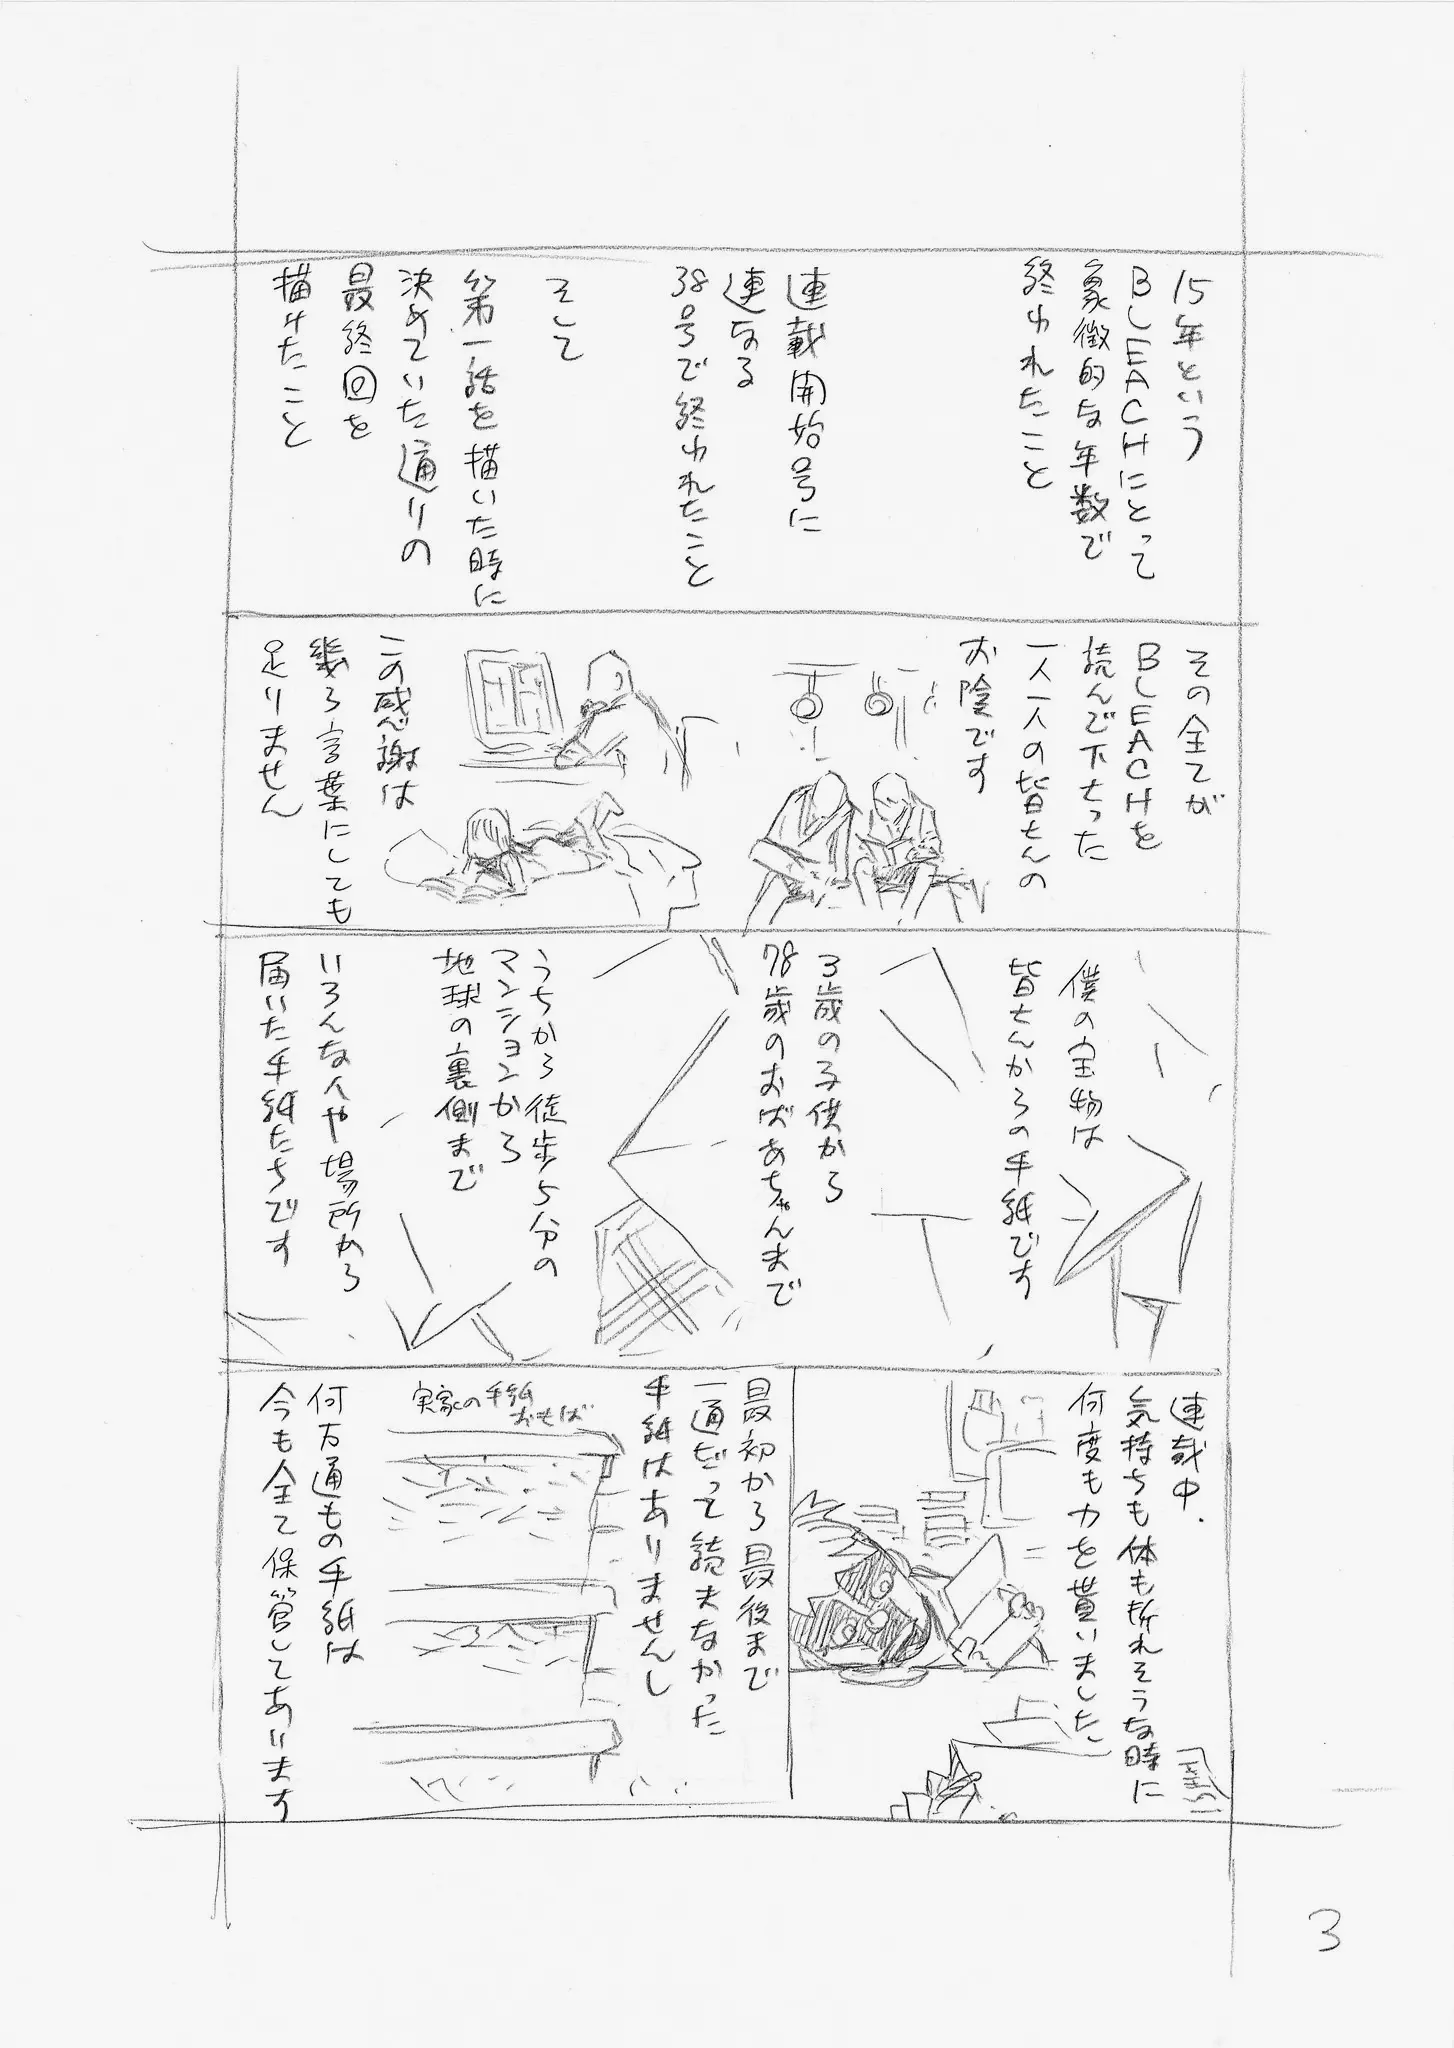 15年という
BLEACHにとって
象徴的な年数で
終われたこと
連載開始号に
連なる
38号で終われたこと
そして
第一話を描いた時に
決めていた通りの
最終回を
描けたこと
その全てが
BLEACHを
読んで下さった
一人一人の皆さんの
お陰です
この感謝は
幾ら言葉にしても
足りません
僕の宝物は
皆さんからの手紙です
3歳の子供から
78歳のおばあちゃんまで
うちから徒歩5分の
マンションから
地球の裏側まで
いろんな人や場所から
届いた手紙たちです
連載中、
気持ちも体も折れそうな時に
何度も力を貰いました
最初から最後まで
一通だって読まなかった
手紙はありませんし
実家の手紙
おきば
何万通もの手紙は
今も全て保管してあります
3